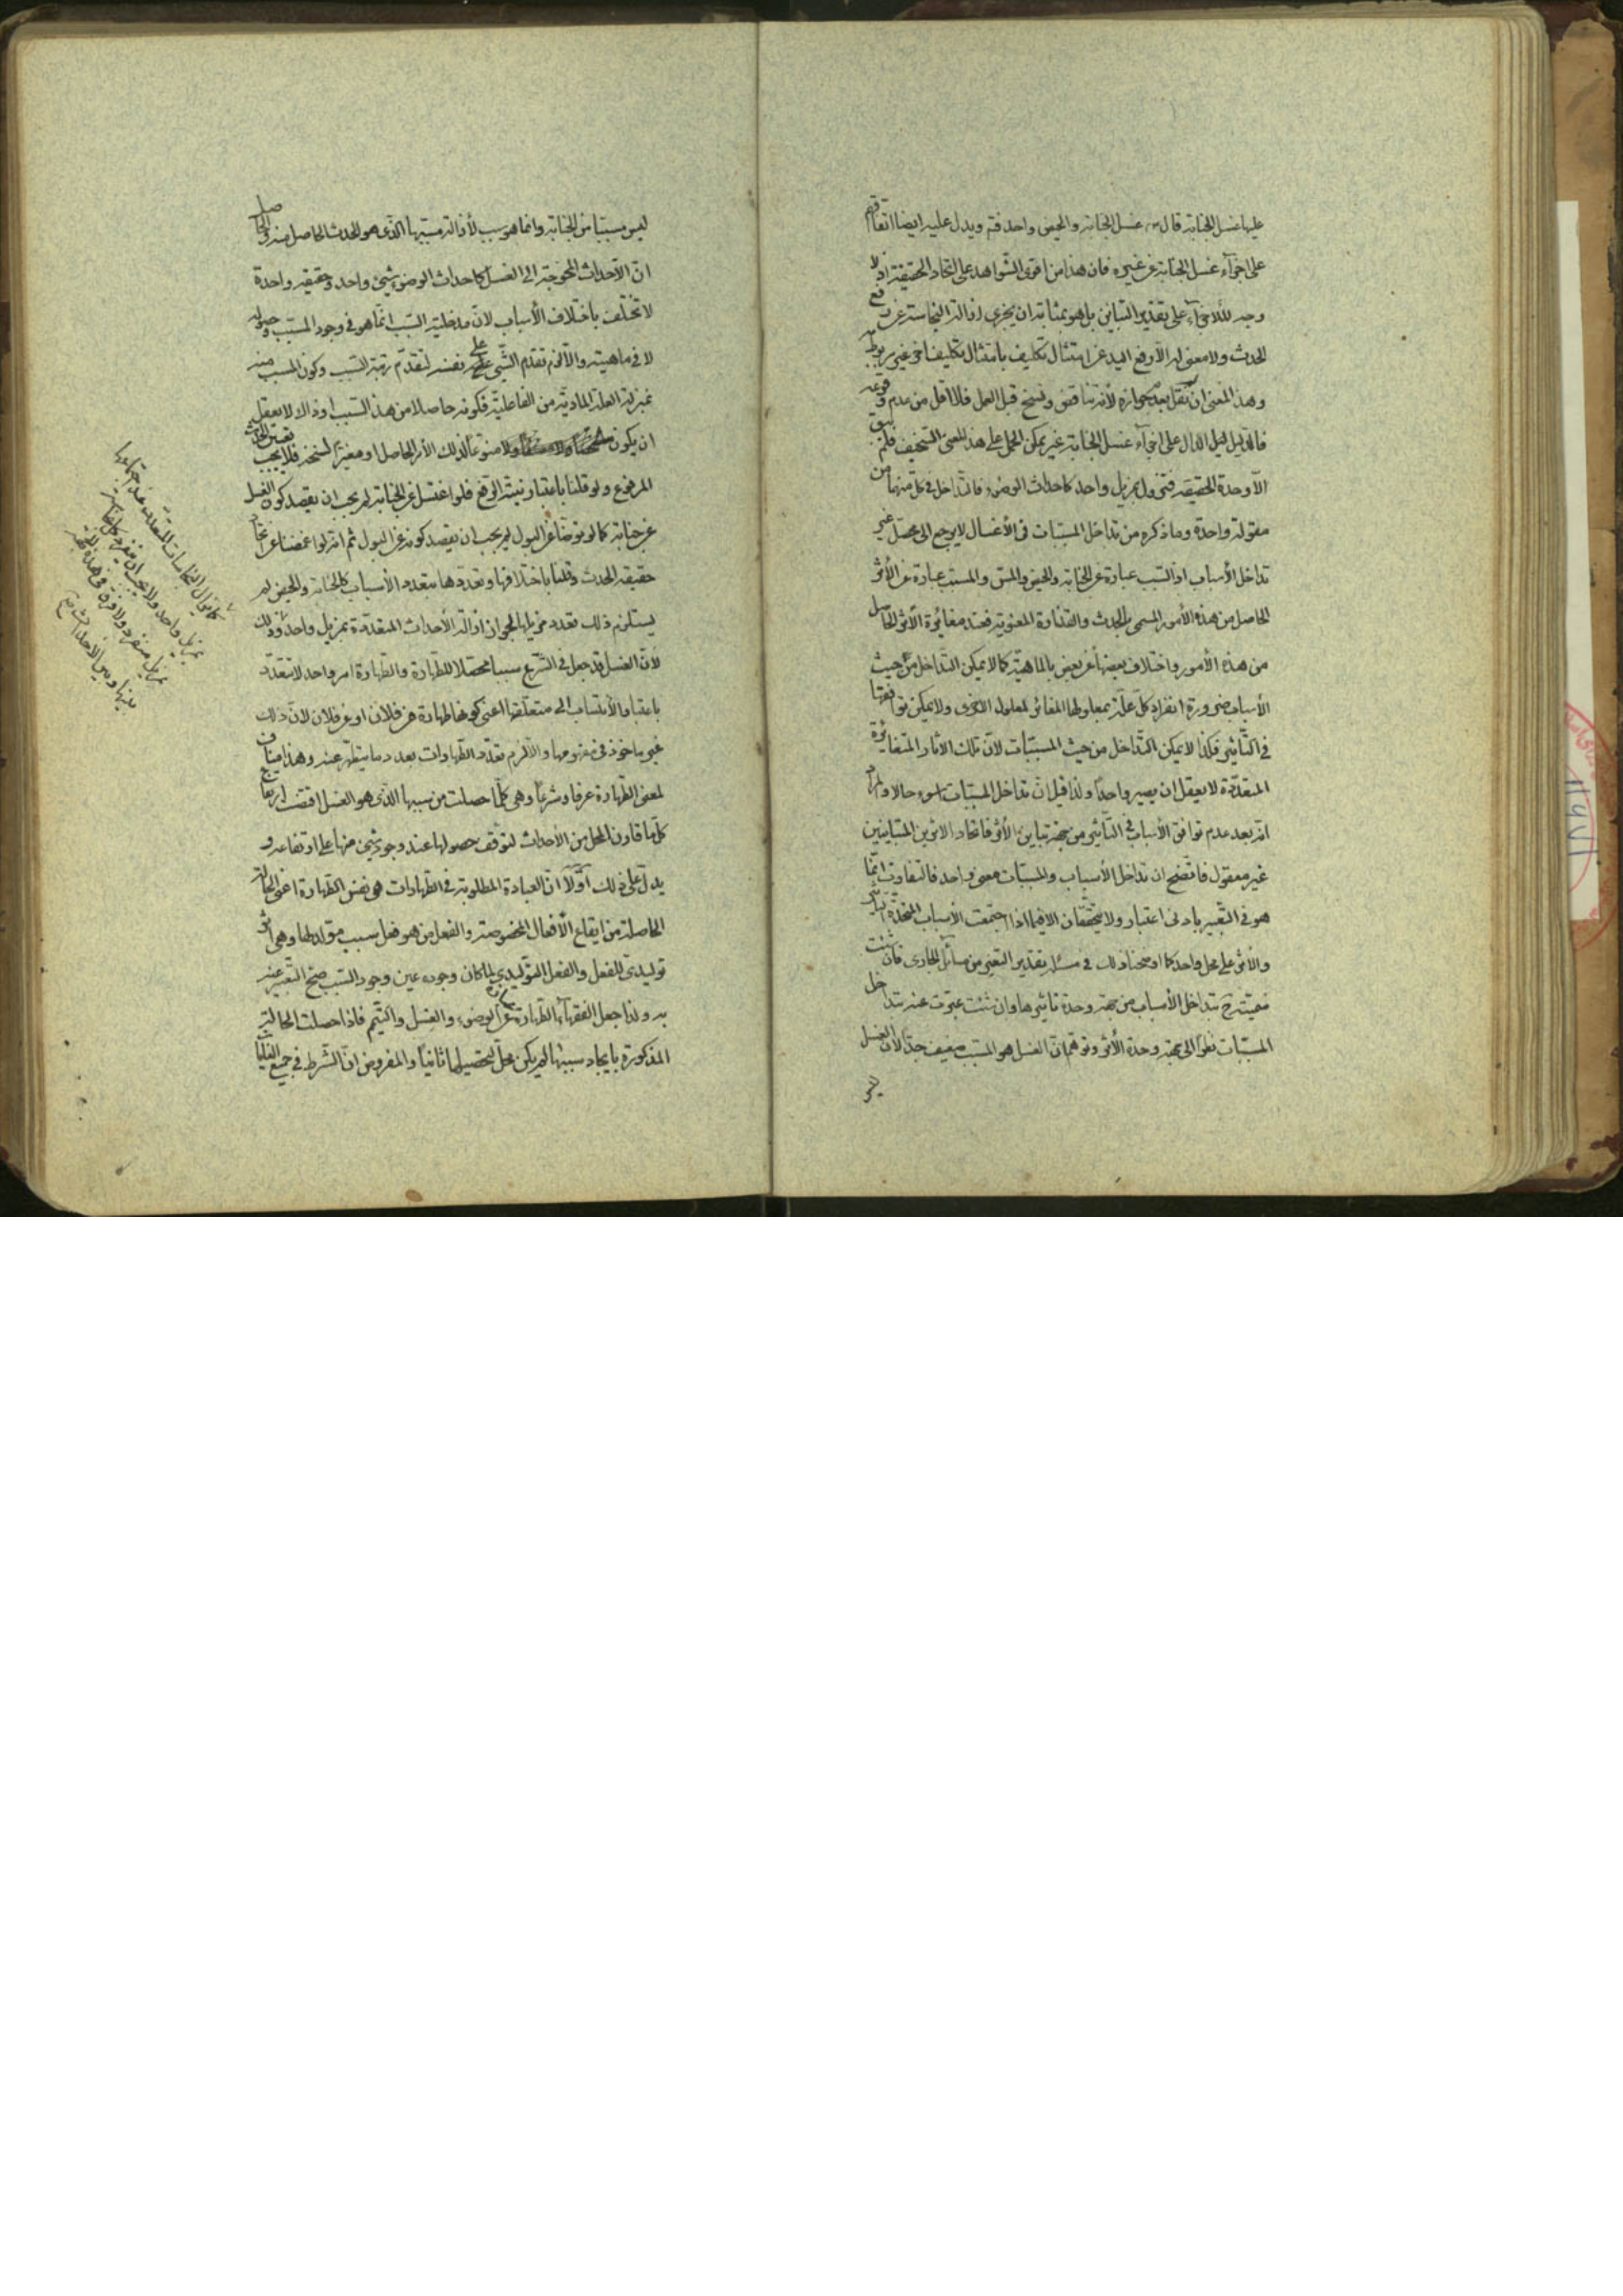 عليها غسل الجنابة قال س غسل الجنابة والحيض واحد فتم ويدل عليه ايضا اتفاقهم
على اجزآء غسل الجنابة عن غيره فان هذا من اقوى الشواهد على اتحاد الحقيقة اذ لا
وجه للاجزآء على تقدير التباين بل هو بمثابة ان يجزى ازالة النجاسة عن رفع
الحدث ولا معنى له الا رفع اليد عن امتثال تكليف بامتثال تكليف اخر غير مربوط به
وهذا المعنى ان نقل بعدم جوازه لأنه تناقض ونسخ قبل العمل فلا اقل من عدم وقوعه
فالدليل الدال على اجزآء غسل الجنابة غير يمكن الحمل على هذا المعنى السخيف فلم يبق
الا وحدة الحقيقة فتزول بمزيل واحد كاحداث الوضوء فالتداخل في كل منهما من
مقولة واحدة وما ذكره من تداخل المسببات في الأغسال لا يرجع الى محصل غير
تداخل الأسباب اذ السبب عبارة عن الجنابة والحيض والمس والمسبب عبارة عن الأثر
الحاصل من هذه الأمور المسمى بالحدث والقذارة المعنوية فعند مغايرة الأثر الحاصل
من هذه الأمور واختلاف بعضها عن بعض بالماهية كما لا يمكن التداخل من حيث
الأسباب ضرورة انفراد كل علة بمعلولها المغاير لمعلول الاخرى ولا يمكن توافقها
في التأثير فكذا لا يمكن التداخل من حيث المسببات لأن تلك الاثار المتغايرة
المتعددة لا يعقل ان يصير واحدا ولذا قيل ان تداخل المسببات اسوء حالا والمراد
انه بعد عدم توافق الأسباب في التأثير من جهة تباين الأثر فاتحاد الاثرين المتباينين
غير معقول فاتضح ان تداخل الأسباب والمسببات معنى واحد فالتفاوت انما
هو في التعبير بادنى اعتبار ولا يتحققان الا فيما اذا اجتمعت الأسباب المتحدة التأثير
والأثر على محل واحد كما اوضحنا ذلك في مسئلة تقدير التغير من مسائل الجارى فان شئت
عبرت بتداخل الأسباب من جهة وحدة تأثيرها وان شئت عبرت عنه بتداخل
المسببات نظرا الى جهة وحدة الأثر وتوهم ان الغسل هو المسبب ضعيف جدا لأن الغسل
ليس
ليس مسببا من الجنابة وانما هو سبب لأزالة مسببها الذى هو الحدث الحاصل منه والحاصل
ان الأحداث المحوجة الى الغسل كاحداث الوضوء شيئ واحد وحقيقة واحدة
لا تختلف باختلاف الأسباب لان مدخلية السبب انما هو في وجود المسبب وحصوله
لا في ماهيته والا لزم تقدم الشيئ على نفسه لتقدم رتبة السبب وكون المسبب منه
بمنزلة العلة المادية من الفاعلية فكونه حاصلا من هذا السبب او ذاك لا يعقل
ان يكون ولا منوعا لذلك الأمر الحاصل او مغيرا لسنخه فلا يجب تعيين الحدث
المرفوع ولو قلنا باعتبار نية الرفع فلو اغتسل عن الجنابة لم يجب ان يقصد كون الغسل
عن جنابة كما لو توضأ عن البول لم يجب ان يقصد كونه عن البول ثم انه لو اغمضنا عن اتحاد
حقيقة الحدث وقلنا باختلافها وتعددها بتعدد الأسباب كالجنابة والحيض لم
يستلزم ذلك تعدد مزيلها لجواز ازالة الأحداث المتعددة بمزيل واحد وذلك
لأن الغسل قد جعل في الشرع سببا محصلا للطهارة والطهارة امر واحد لا تتعدد
باعتبار الأنتساب الى متعلقها اعنى كونها طهارة عن فلان او عن فلان لان ذلك
غير ماخوذ في مفهومها والا لزم تعدد الطهارات بعدد ما يتطهر عنه وهذا مناف
لمعنى الطهارة عرفا وشرعا وهى كلما حصلت من سببها الذى هو الغسل اقتضت ارتفاع جميع
كلما قارن المحل من الاحداث لتوقف حصولها عند وجود شيئ منها على ارتفاعه و
يدل على ذلك اولا ان العبادة المطلوبة في الطهارات هى نفس الطهارة اعنى الحالة
الحاصلة من ايقاع الأفعال المخصوصة والفعل من هو فعل سبب مولد لها وهى اثر
توليدى للفعل والفعل التوليدي لما كان وجوده عين وجود السبب صح التعبير عنه
به ولذا جعل الفقهآء الطهارة عبارة عن الوضوء والغسل والتيمم فاذا حصلت الحالة
المذكورة بايجاد سببها لم يكن محل لتحصيلها ثانيا والمفروض ان الشرط في جميع الغايات
كما يزال النجاسات المتعددة عند اجتماعها
بمزيل واحد ولا يجب ان ينفرد كل نجاسة
بمزيل منفرد ولا فرق في هذه الجهة
بينها وبين الاحداث صح